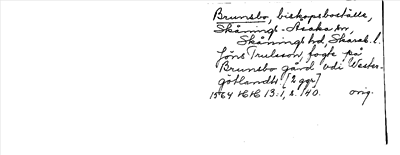 Brunsbo, biskopsboställe,
Skånings-Asaka sn,
Skånings hd, Skarab. l.
Jöns Trulsson, fogte på
Brunsbo gård vdi Wester-
götlandt [2 ggr]
1564 HH 13:1, s. 140. orig.